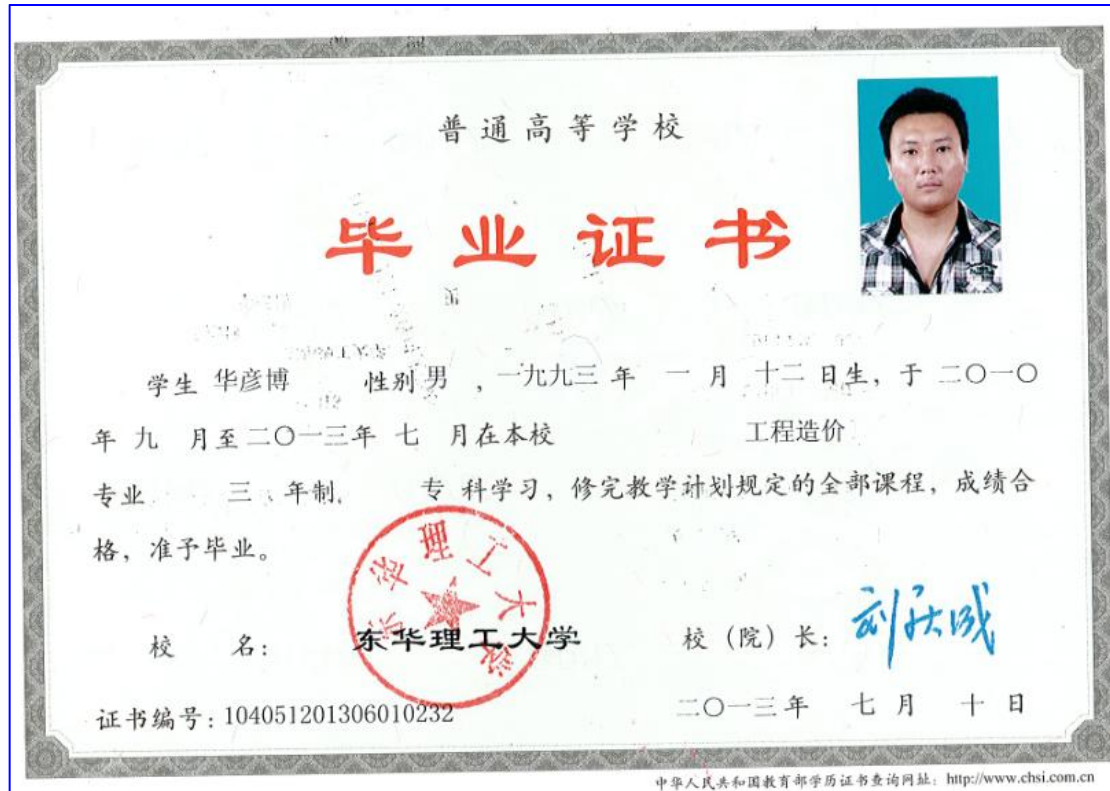 普通高等学校
毕业证书
学生 华彦博 性别 男 ，一九九三 年 一 月 十二 日生，于 二〇一〇
年 九 月至 二〇一三年 七 月在本校 工程造价
专业 三 年制， 专 科学习，修完教学计划规定的全部课程，成绩合
格，准予毕业。
东华理工大学
校 名： 东华理工大学 校（院）长：
证书编号：104051201306010232 二〇一三年 七 月 十 日
中华人民共和国教育部学历证书查询网址：http://www.chsi.com.cn